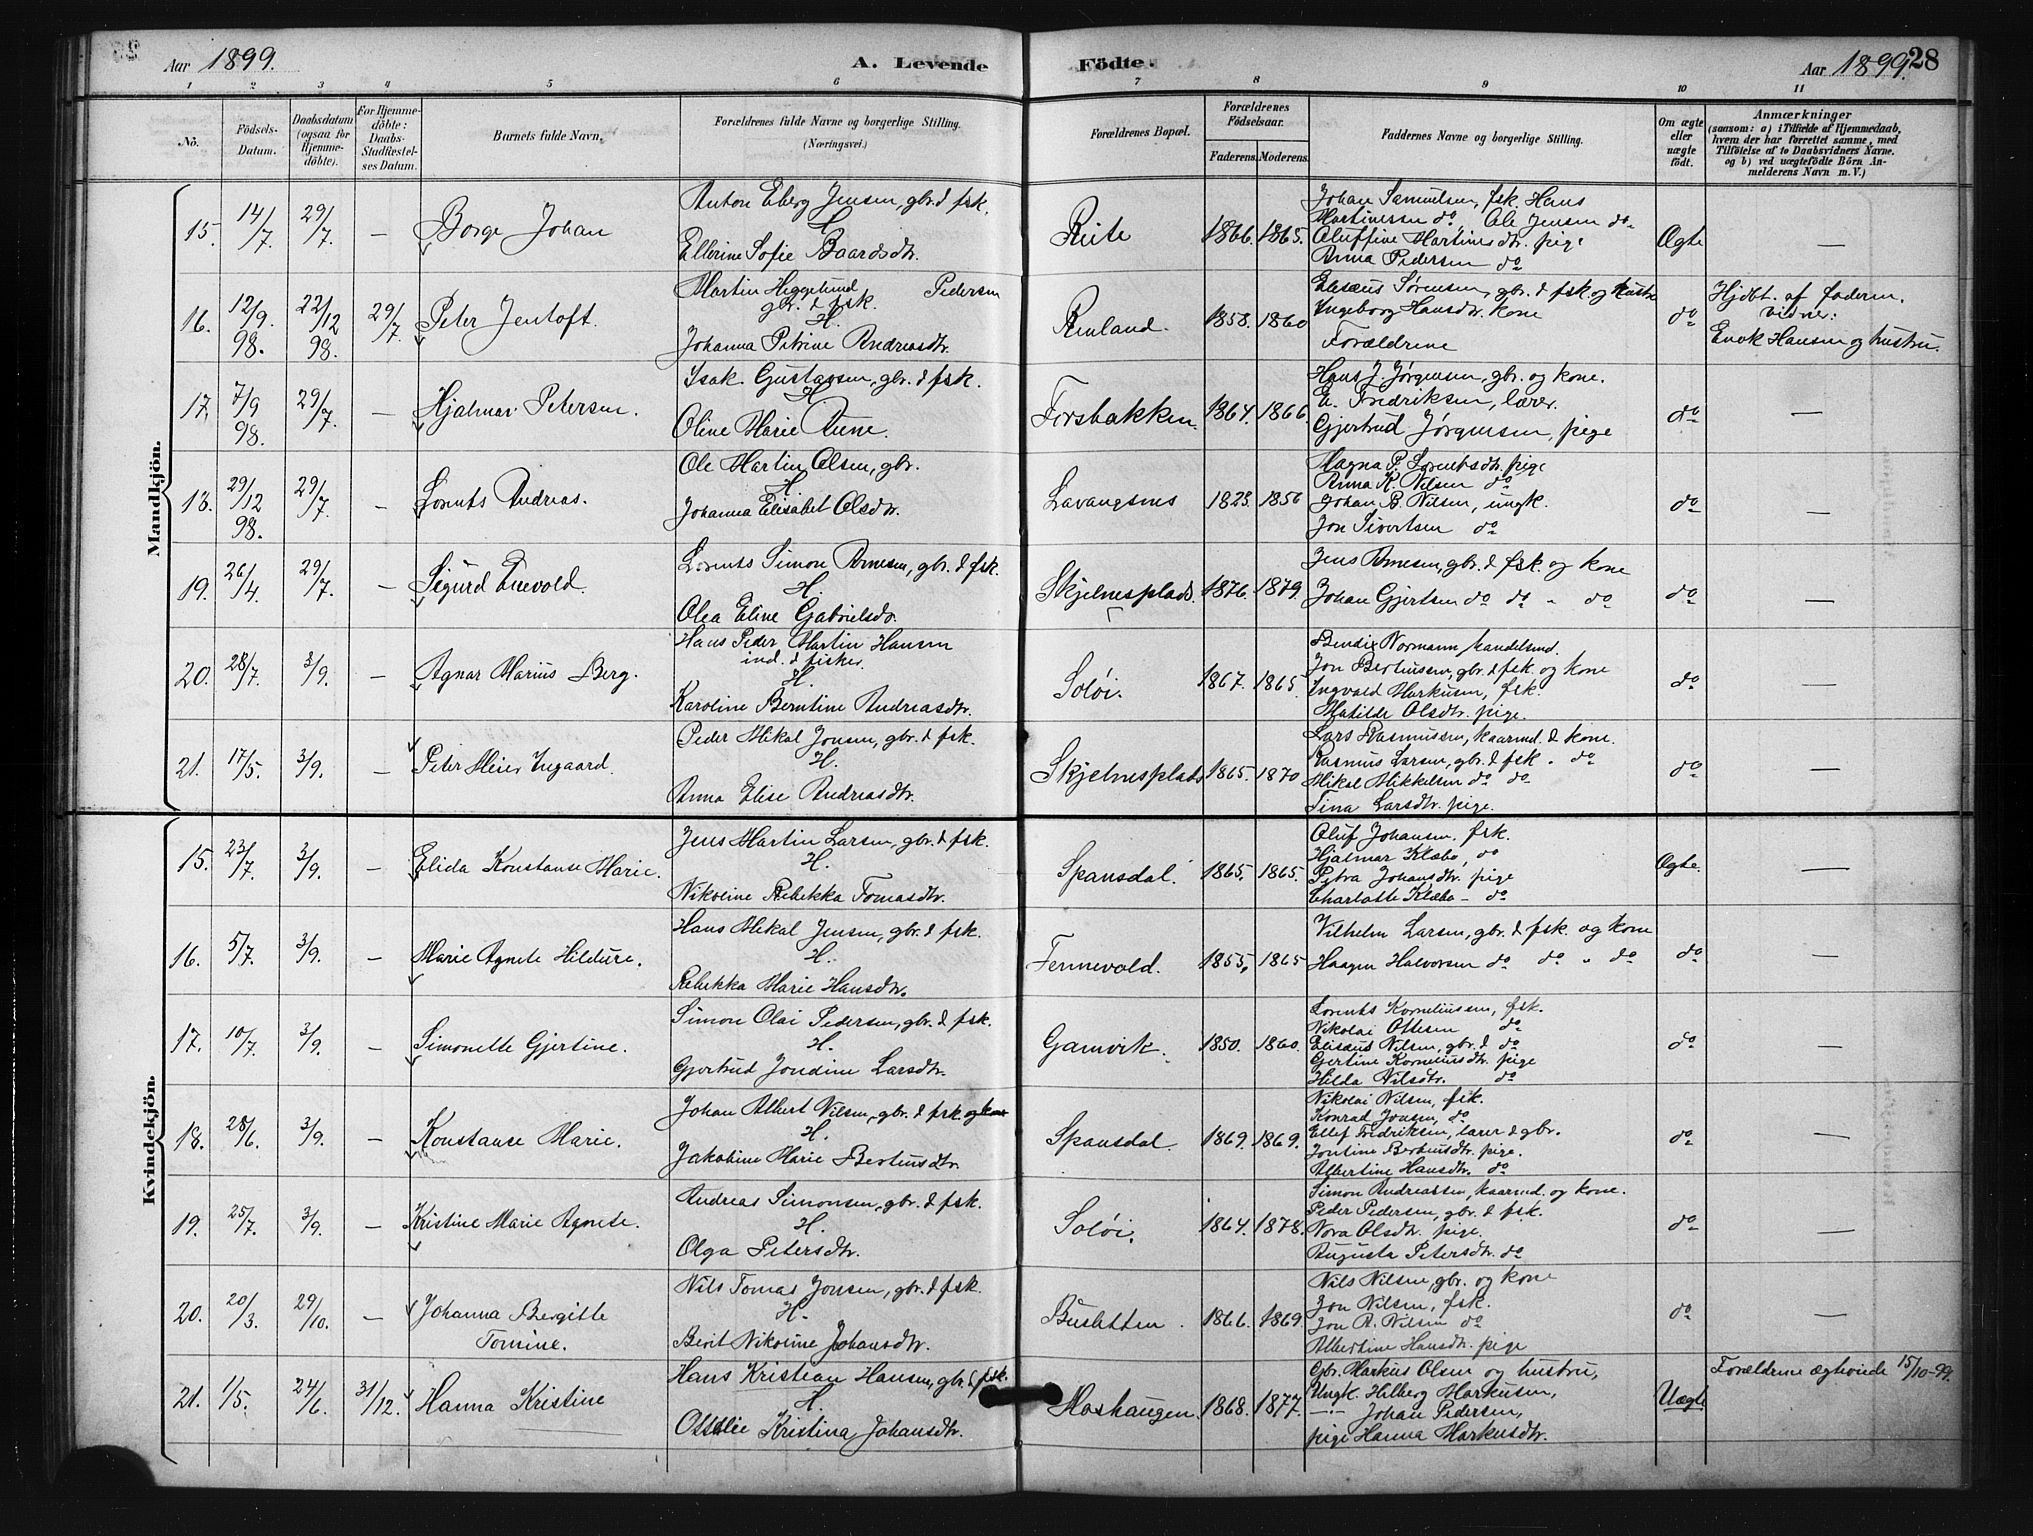 Aar 1899.
A. Levende
Födte.
Aar 1899.
28
1 2 3 4 5 6 7 8 9 10 11
No.
Födsels-Datum.
Daabsdatum (ogsaa for Hjemme-döbte).
For Hjemme-döbte: Daabs-Stadfæstel-ses Datum.
Barnets fulde Navn.
Forældrenes fulde Navne og borgerlige Stilling.
(Næringsvei.)
Forældrenes Bopæl.
Forældrenes Födselsaar.
Faderens. Moderens.
Faddernes Navne og borgerlige Stilling.
Om ægte eller uægte födt.
Anmærkninger
(saasom: a) i Tilfælde af Hjemmedaab, hvem der har forrettet samme, med Tilföielse af to Daabsvidners Navne. og b) ved uægtefödte Börn An-melderens Navn m. V.)
Mandkjön.
15. 14/7 29/7 — Borge Johan
Anton Eberg Jensen, gbr. & fsk.
H.
Ellerine Sofie Baardsdtr.
1866. 1865.
Johan Samuelsen, fsk. Hans
Martinussen do, Ole Jensen do
Oluffine Martinsdtr. pige
Anna Pedersen do
Ægte —
16. 12/9 98. 22/12 98. 29/7 Peter Jentoft.
Martin Heggelund Pedersen
gbr. & fsk.
H.
Johanna Petrine Andreasdtr.
Renland. 1858. 1860
Elisæus Sørensen, gbr. & fsk og hustru
Ingeborg Hansdtr. kone
Forældrene
do
Hjdbt. af faderen.
vidner:
Enok Hansen og hustru.
17. 7/9 98. 29/7 — Hjalmar Petersen.
Isak Gustavsen, gbr. & fsk.
H
Oline Marie Aune.
Forsbakken. 1864. 1866.
Hans J. Jørgensen, gbr. og kone.
E. Fredriksen, lærer.
Gjertrud Jørgensen, pige
do —
18. 29/12 98. 29/7 — Lorents Andreas.
Ole Martin Olsen, gbr.
H.
Johanna Elisabet Olsdtr.
Lavangsnes 1823. 1856
Magna P. Lorentsdtr. pige
Anna K. Nilsen do
Johan B. Nilsen, ungk.
Jon Sivertsen do
do —
19. 26/4. 29/7. — Sigurd Enevold.
Lorents Simon Arnesen, gbr. & fsk.
H.
Olea Eline Gabrielsdtr.
Skjelnesplads. 1876. 1879.
Jens Arnesen, gbr. & fsk. og kone
Johan Gjertsen do do " do
do —
20. 28/7. 3/9. — Agnar Marius Berg.
Hans Peder Martin Hansen
ind. & fisker.
H.
Karoline Berntine Andreasdtr.
Soløi. 1867. 1865.
Bendix Normann handelsmd.
Jon Bertiussen, gbr. & fsk. og kone
Ingvald Markusen, fsk.
Matilde Olsdtr. pige.
do —
21. 17/5. 3/9. — Peter Meier Ingaard.
Peder Mikal Jonsen, gbr. & fsk.
H.
Anna Elise Andreasdtr.
Skjelnesplads 1865. 1870
Lars Rasmussen, kaarmd. & kone.
Rasmus Larsen, gbr. & fsk. " do
Mikal Mikkelsen do do
Tina Larsdtr. pige.
do —
Kvindekjön.
15. 23/7. 3/9. — Elida Konstanse Marie.
Jens Martin Larsen, gbr. & fsk.
H.
Nikoline Rebekka Tomasdtr.
Spansdal. 1865. 1865.
Oluf Johansen, fsk.
Hjalmar Klæbo, do
Petra Johansdtr. pige
Charlotte Klæbo — do
Ægte. —
16. 5/7. 3/9. — Marie Agnete Hildure.
Hans Mikal Jensen, gbr. & fsk.
H.
Rebekka Marie Hansdtr.
Fennevold. 1855. 1865
Vilhelm Larsen, gbr. & fsk. og kone
Haagen Halvorsen do do " do
do —
17. 10/7. 3/9. — Simonette Gjertine.
Simon Olai Pedersen, gbr. & fsk.
H.
Gjertrud Jondine Larsdtr.
Gamvik. 1850. 1860.
Lorents Korneliussen, fsk.
Nikolai Ottesen do
Elisæus Nilsen, gbr. & do
Gjertine Korneliusdtr. pige
Hilda Nilsdtr. do
do —
18. 28/6. 3/9. — Konstanse Marie.
Johan Albert Nilsen, gbr. & fsk. og kone
H.
Jakobine Marie Bertiusdtr.
Spansdal. 1869. 1869.
Nikolai Nilsen, fsk.
Konrad Jonsen, do
Ellef Fredriksen, lærer & gbr.
Jontine Bertiusdtr. pige.
Albertine Hansdtr. do
do —
19. 25/7. 3/9. — Kristine Marie Agnete.
Andreas Simonsen, gbr. & fsk.
H.
Olga Petersdtr.
Soløi. 1864. 1878.
Simon Andreassen, kaarmd. og kone.
Peder Pedersen, gbr. & fsk.
Nora Olsdtr. pige.
Augusta Petersdtr. do
do —
20. 20/3. 29/10. — Johanna Bergitte
Tomine.
Nils Tomas Jonsen, gbr. & fsk.
H.
Berit Nikoline Johansdtr.
Busletten. 1866. 1869.
Nils Nilsen, gbr. og kone
Jon Nilsen, fsk.
Jon R. Nilsen do
Albertine Hansdtr. pige
do —
21. 1/5. 24/6. 31/12. Hanna Kristine
Hans Kristian Hansen, gbr. & fsk.
H.
Ottilie Kristina Johansdtr.
1868. 1877.
Gbr. Markus Olsen og hustru,
Ungk. Hilberg Markusen,
—"— Johan Pedersen,
pige Hanna Markusdtr.
Uægte
Forældrene ægteviede 15/10-99.